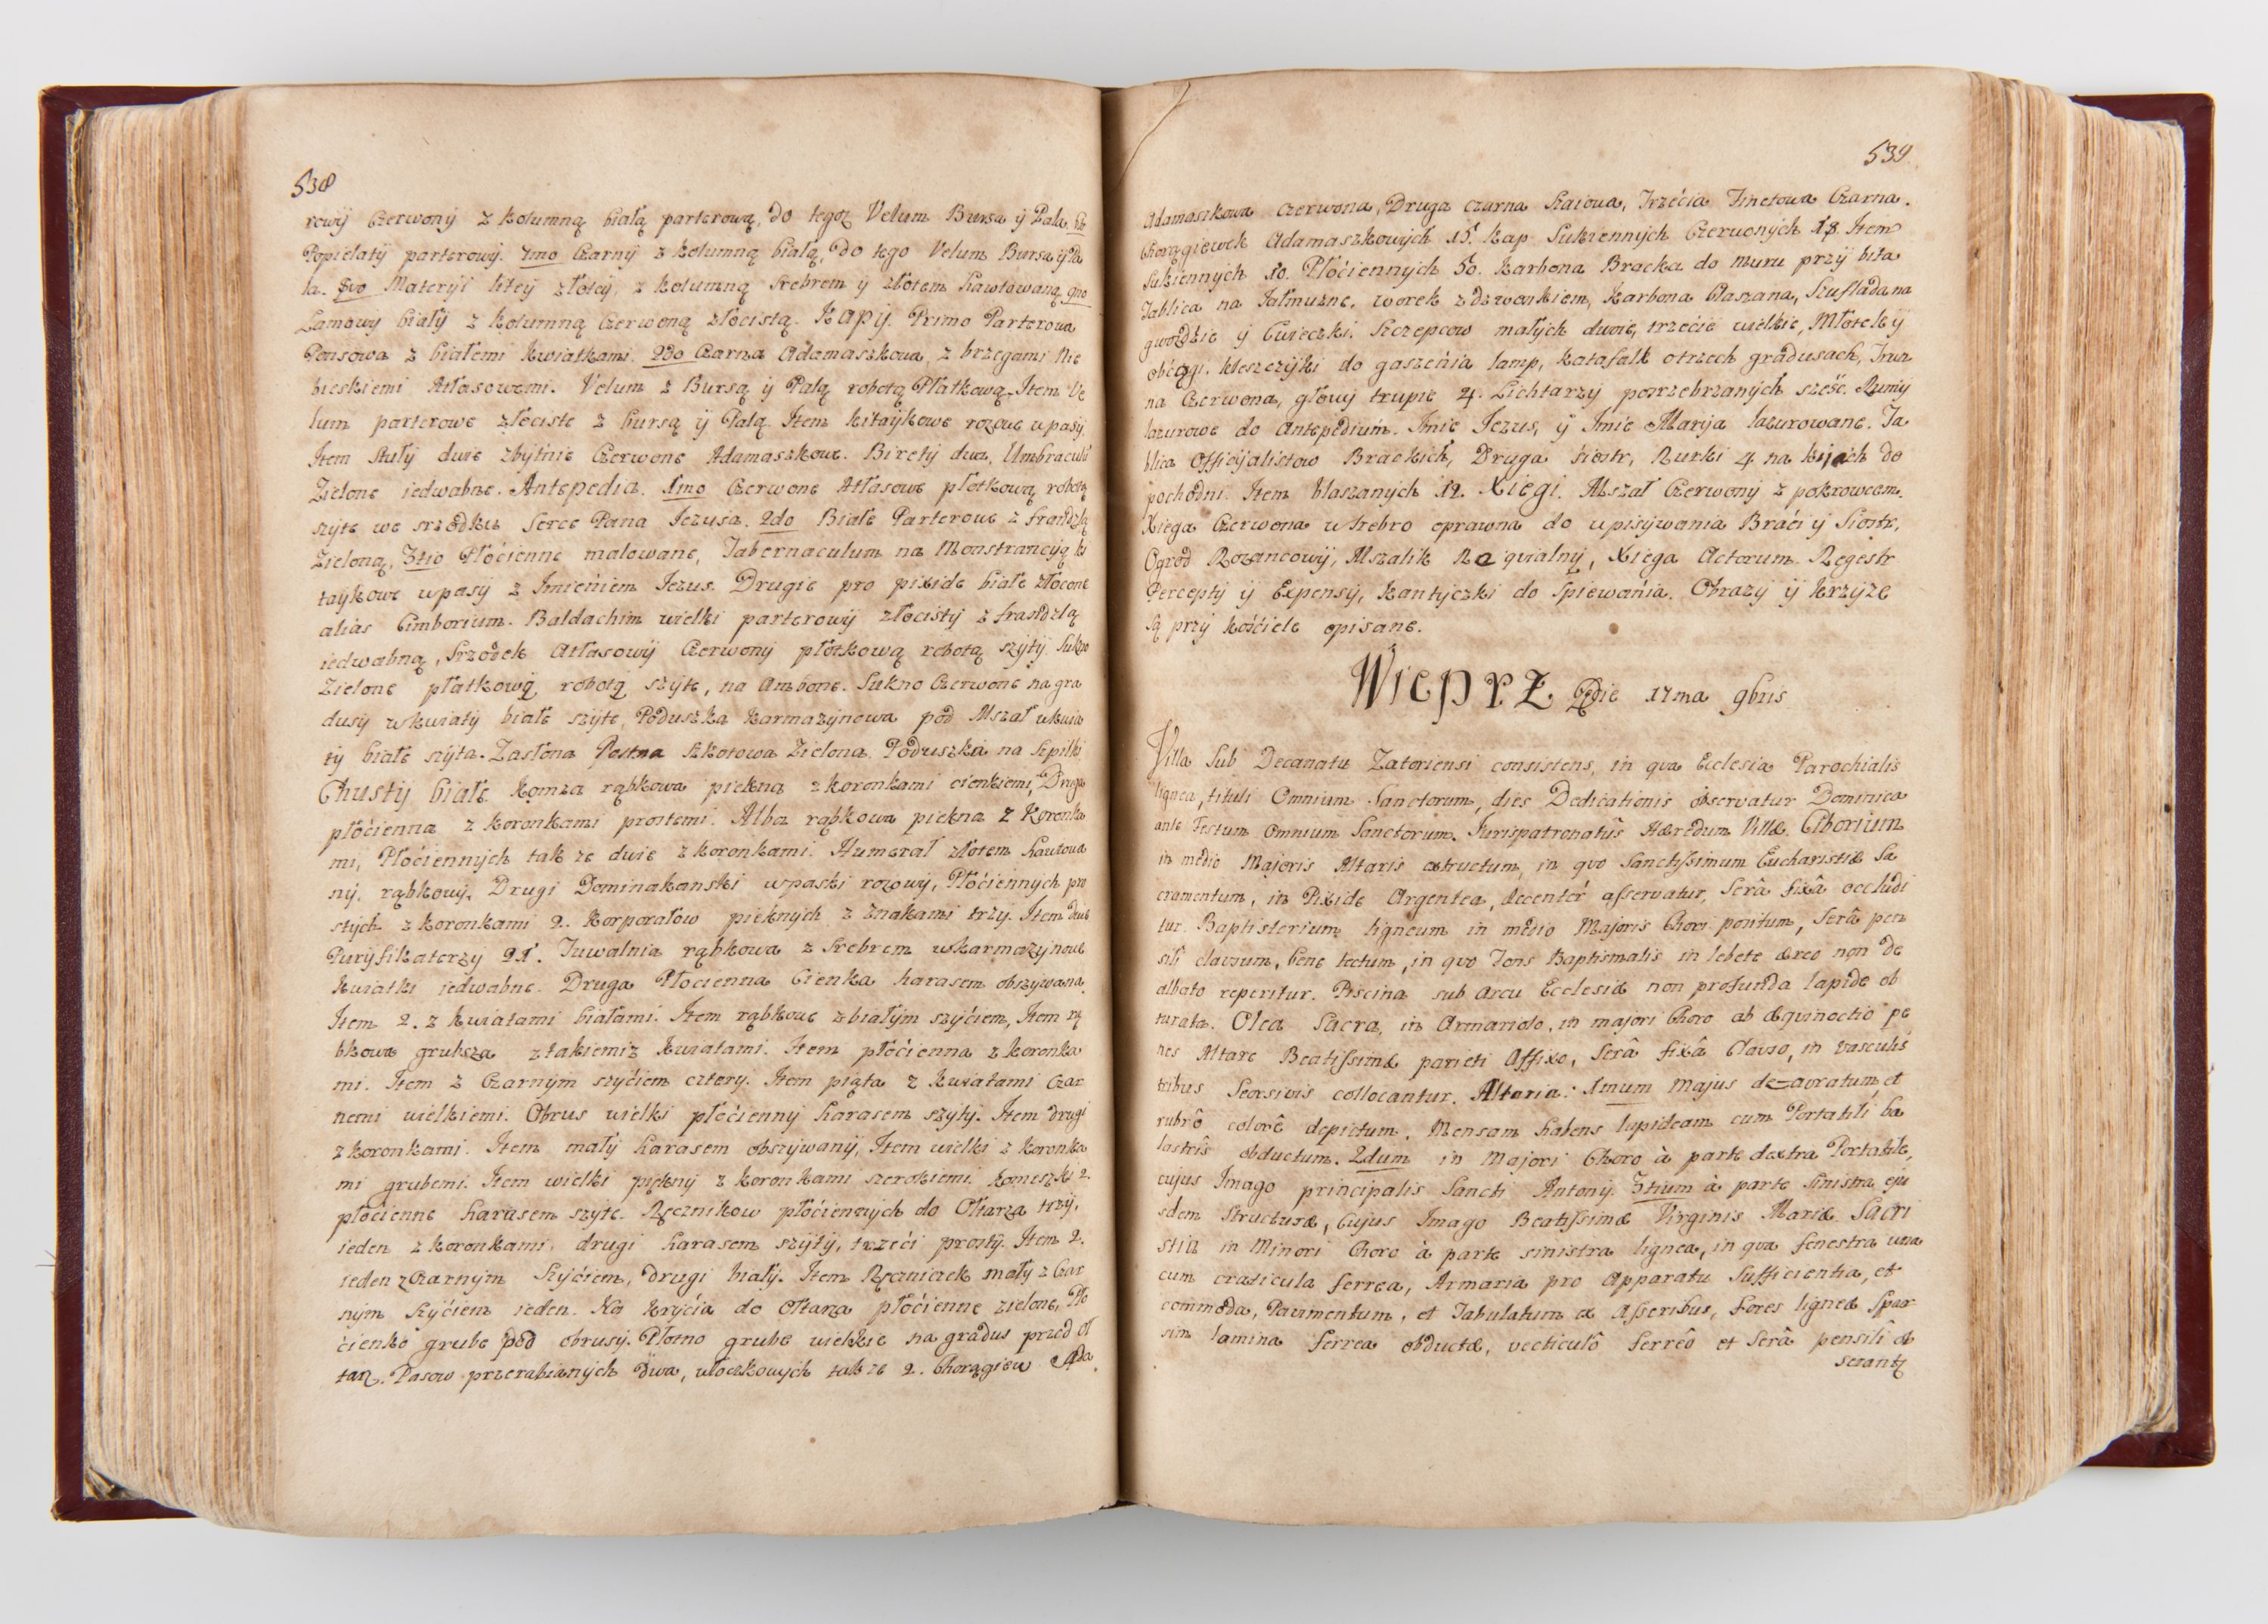 538
rowy Czerwony z kolumną białą parterową, do tegoz Velum Bursa ÿ Pala. 6to
Popielaty parterowy. 7mo Czarny z kolumną białą, do tego Velum Bursa ÿ Pa
la. 8vo Materyi litey złotey, z kolumną srebrem ÿ złotem hawtowaną. 9no
Lamowy biały z kolumną Czerwoną złocistą. Kapy. Primo Parterowa
Ponsowa z białemi kwiatkami. 2do Czarna Adamaszkowa, z brzegami Nie
bieskiemi Atłasowemi. Velum z Bursą ÿ Palą robotą Płatkową. Item Ve
lum parterowe złociste z bursą ÿ Palą. Item kitaykowe rozowe w pasy.
Item Stuły dwie zbytnie Czerwone Adamaszkowe. Birety dwa, Umbraculu
Zielone iedwabne. Antepedia. 1mo Czerwone Atłasowe płotkową robotą
szyte we srzodku Serce Pana Jezusa. 2do Białe Parterowe z frandzlą
Zieloną, 3tio Płócienne malowane, Tabernaculum na Monstrancyą ki
taykowe w pasy z Imieniem Jezus. Drugie pro pixide białe złocone
alias Cimborium. Baldachim wielki parterowy złocisty z frandzlą
iedwabną, Srzodek Atłasowy Czerwony płotkową robotą szyty. Sukno
Zielone płatkową robotą szyte, na Ambone. Sukno Czerwone na gra
dusy w kwiaty białe szyte, Poduszka karmazynowa pod Mszał w kwia
ty białe szyta. Zasłona Postna Szkotowa Zielona. Poduszka na Szpilki
Chusty białe. Komza rąbkowa piekna z koronkami cienkiemi, Druga
płócienna z koronkami prostemi. Alba rąbkowa piekna z Koronka
mi, Płociennych tak ze dwie z koronkami. Humerał złotem hawtowa
ny, rąbkowy. Drugi Dominakanski w paski rozowy, Płóciennych pro
stych z koronkami 2. Korporałow pieknych z znakami trzy. Item dwa
Puryfikaterzy 21. Tuwalnia rąbkowa z Srebrem w karmazynowe
kwiatki iedwabne. Druga Płocienna Cienka harasem obszywana.
Item 2. z kwiatami białami. Item rąbkowe z białym szyciem, Item rą
bkowa grubsza z takiemiz kwiatami. Item płócienna z koronka
mi. Item z Czarnym szyciem cztery. Item piąta z kwiatami Czar
nemi wielkiemi. Obrus wielki płócienny harasem szyty. Item drugi
z koronkami. Item mały harasem obszywany, Item wielki z koronka
mi grubemi. Item wielki piękny z koronkami szerokiemi. komeszki 2.
płocienne harasem szyte. Ręcznikow płóciennych do Ołtarza trzy,
ieden z koronkami, drugi harasem szyty, trzeci prosty. Item 2.
ieden z Czarnym Szyciem, drugi biały. Item Ręczniczek mały z Czar
nym szyciem ieden. Na krycia do Ołtarza płócienne zielone, Płó
cienko grube pod obrusy. Płotno grube wielkie na gradus przed Oł
tarz. Pasow przerabianych dwa, włoczkowych takze 2. Chorągiew Ada
539.
Adamaszkowa czerwona, Druga czarna Kaiowa, Trzécia Tinetowa Czarna.
Chorągiewek Adamaszkowych 15. Kap Sukiennych Czerwonych 18. Item
Sukiennych 10. Płóciennych 50. Karbona Bracka do muru przy bita
Tablica na Jałmuzne, worek z dzwonkiem, Karbona blaszana, Szuflada na
gwozdzie ÿ Cwieczki. Szczepcow małych dwie, trzecie wielkie, Młotek ÿ
obcągi. kleszczyki do gaszenia lamp, katafalk o trzech gradusach, Trun
na Czerwona, głowy trupie 4. Lichtarzy posrzebrzanych sześć. Rumy
lazurowe do Antepedium. Imie Jezus, ÿ Imie Marÿa lazurowane. Ta
blica Officyalistow Brackich, Druga siostr, Rurki 4 na kijach do
pochodni. Item blaszanych 12. Xiegi. Mszał Czerwony z pokrowcem.
Xiega Czerwona w srebro oprawna do wpisywania Braci ÿ Siostr,
Ogrod Rozancowy, Mszalik Requialny, Xiega Actorum. Regestr
Percepty ÿ Expensy, Kantyczki do Spiewania. Obrazy ÿ Krzyze
są przy kościele opisane.
Wieprz Die 17ma 9bris
Villa Sub Decanatu Zatoriensi consistens, in qva Ecclesia Parochialis
lignea, tituli Omnium Sanctorum, dies Dedicationis observatur Dominica
ante Festum Omnium Sanctorum. Jurispatronatûs Hæredum Villæ. Ciborium
in medio Majoris Altaris extructum, in qvo Sanctissimum Eucharistiæ Sa
cramentum, in Pixide Argentea, decentér asservatur, Serâ fixâ occludi
tur. Baptisterium ligneum in medio Majoris Chori positum, Serâ pen
sili clausum, bene tectum, in qvo Fons Baptismalis in lebete æreo non de
albato reperitur. Piscina sub Arcu Ecclesiæ non profunda lapide ob
turata. Olea Sacra, in Armariolo, in majori Choro ab æqvinoctio pe
nes Altare Beatissimæ parieti Affixo, Serâ fixâ Clavso, in vasculis
tribus Seorsivis collocantur. Altaria: 1mum Majus de-avratum, et
rubrô colorê depictum. Mensam habens lapideam cum Portatili, ba
lastris obductum. 2dum in Majori Choro à parte dextra Portatile,
cujus Imago principalis Sancti Antonÿ. 3tium à parte Sinistra, eju
sdem Structuræ, Cujus Imago Beatissimæ Virginis Mariæ. Sacri
stia in Minori Choro à parte sinistra lignea, in qva fenestra una
cum craticula ferrea, Armaria pro Apparatu Sufficientia, et
commoda, Pavimentum, et Tabulatum ex Asseribus, Fores ligneæ Spar
sim lamina ferrea obductæ, vecticulô ferreô et Serâ pensilî ob
serantꝭ